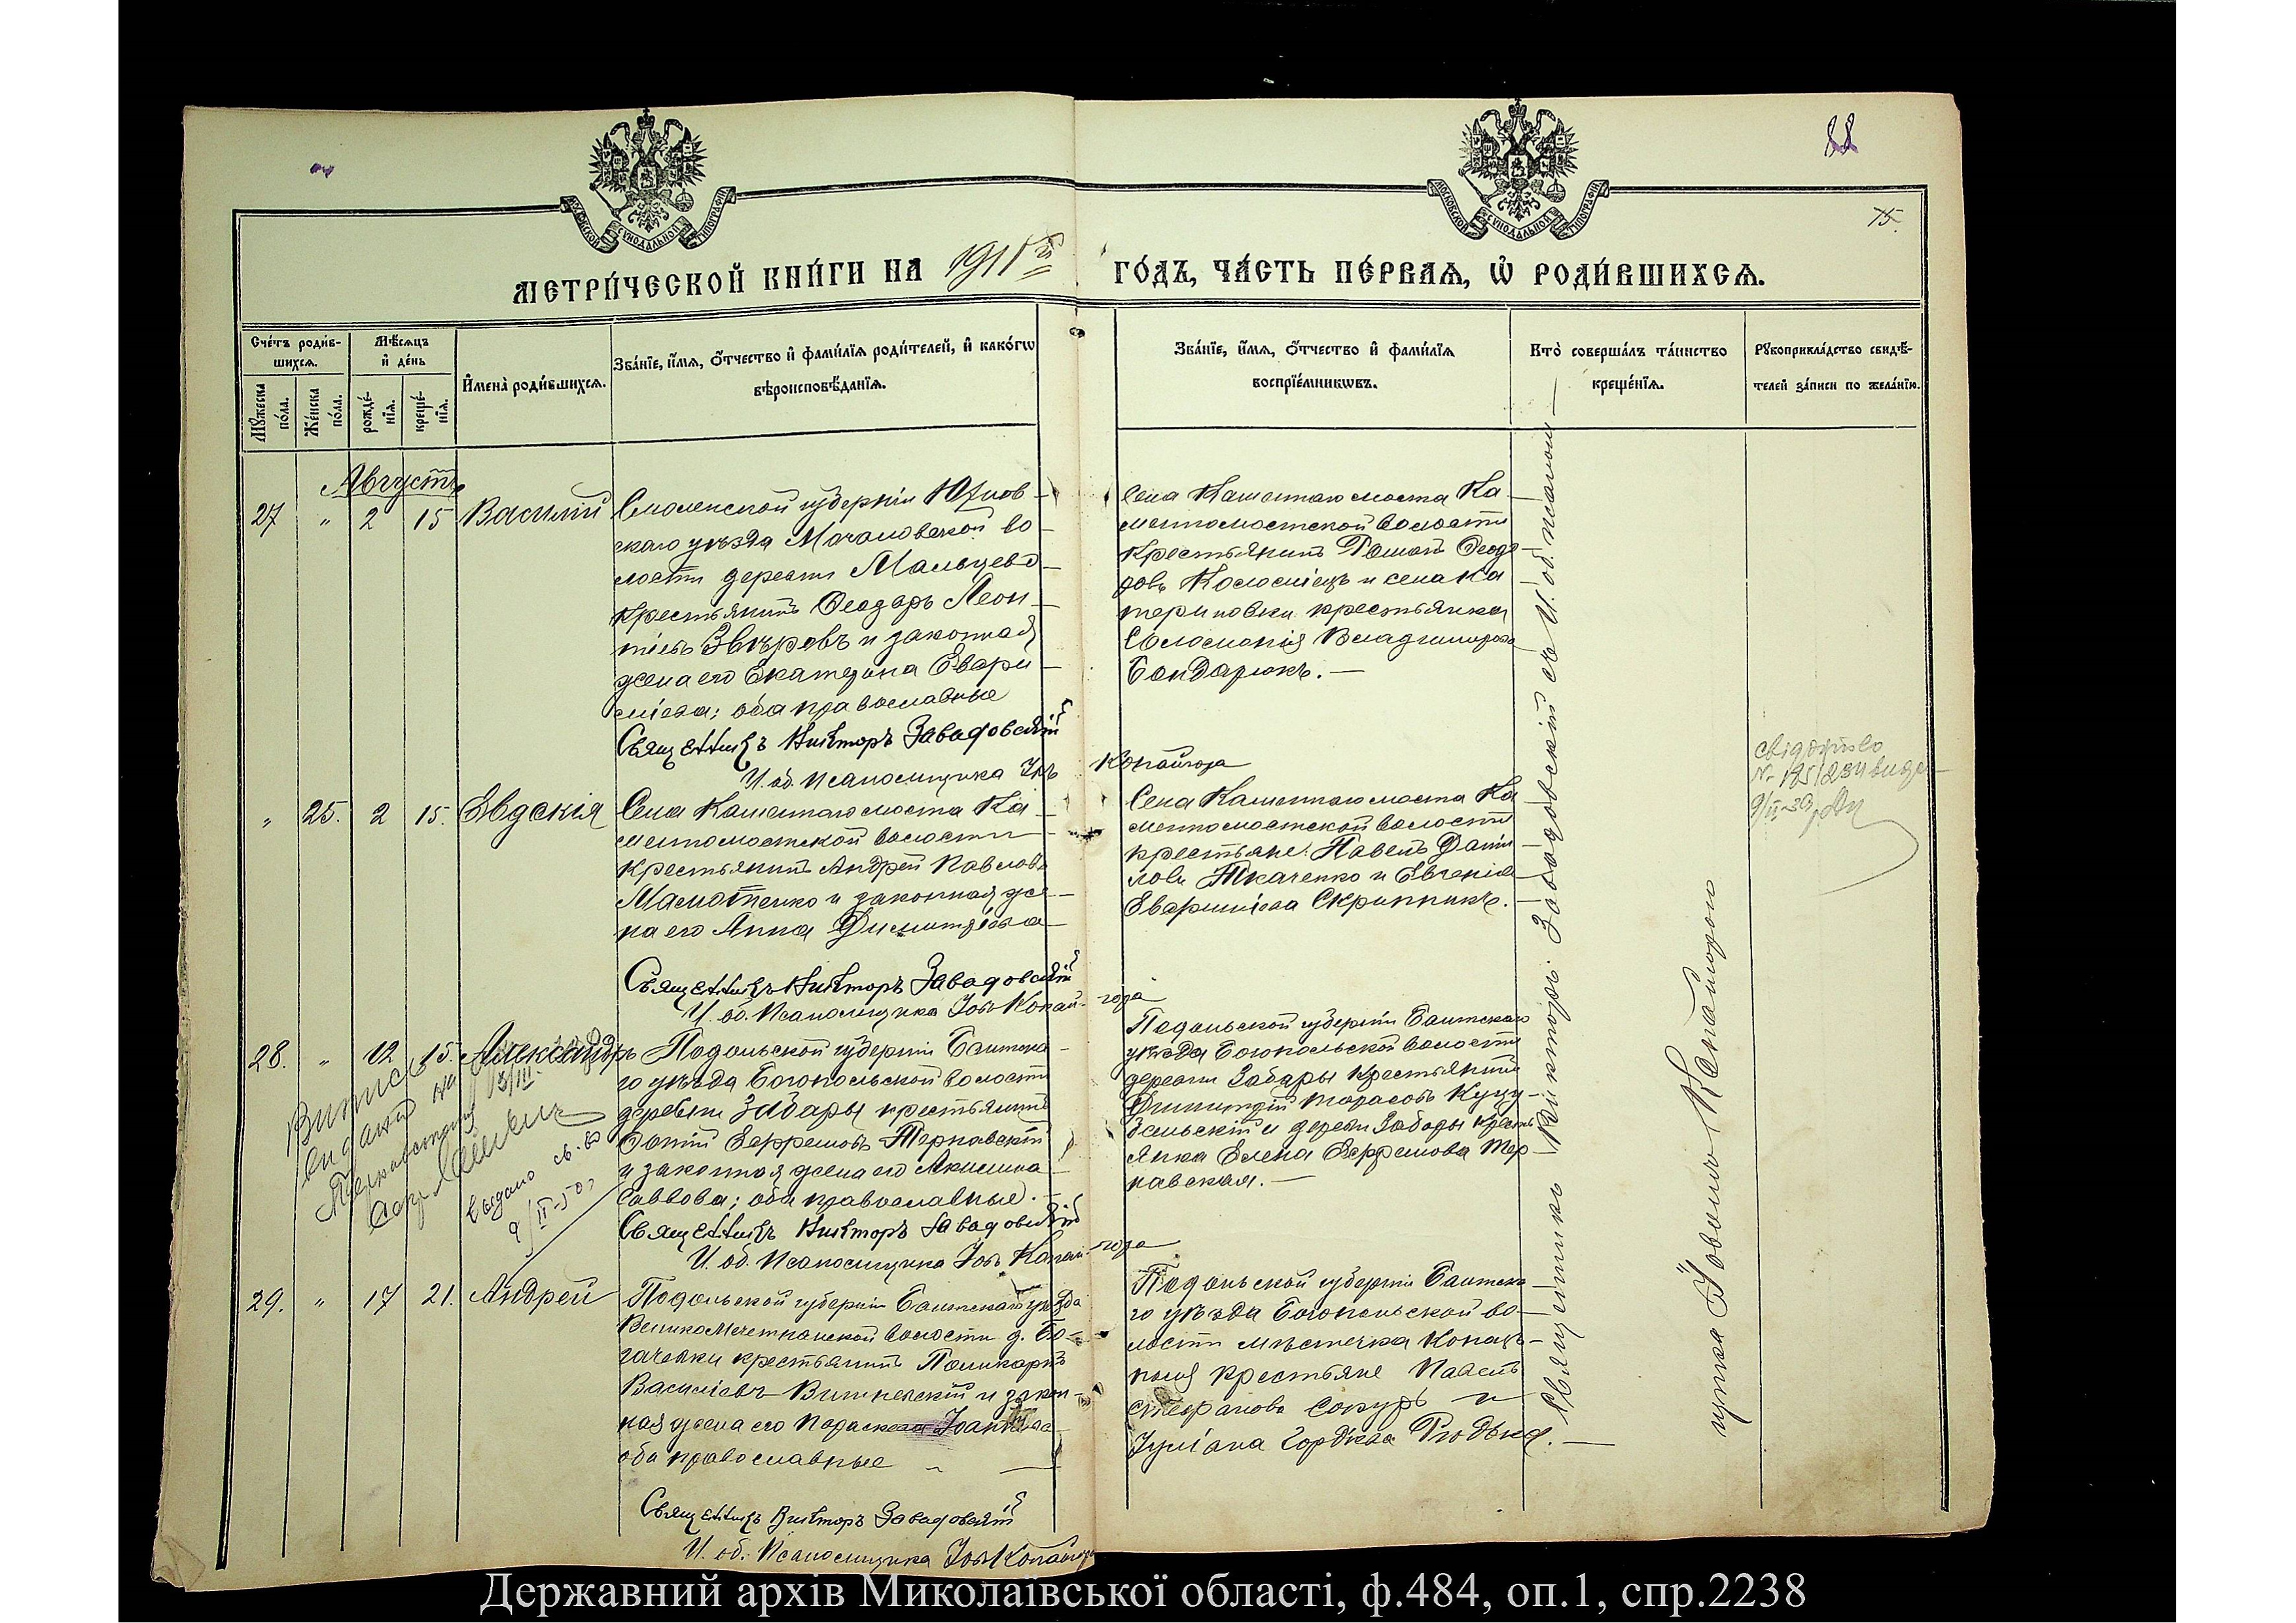 88
75.
МЕТРИ́ЧЕСКОЙ КНИ́ГИ НА 1911й ГО́ДЪ, ЧА́СТЬ ПЕ́РВАЯ, Ѡ РОДИ́ВШИХСЯ.
Сче́тъ роди́вшихся.
Мѹ́жеска по́ла.
Же́нска по́ла.
Мѣ́сяцъ и҆ де́нь
рожде́нїя.
креще́нїя.
И҆мена̀ роди́вшихся.
Зва́нїе, и҆́мя, ѻ҆́тчество и҆ фами́лїя роди́телей, и҆ како́гѡ
вѣроисповѣ́данїя.
Зва́нїе, и҆́мя, ѻ҆́тчество и҆ фами́лїя
воспрїе́мникѡвъ.
Кто̀ соверша́лъ та́инство
креще́нїя.
Рѹкоприкла́дство свидѣ́-
телей за́писи по жела́нїю.
Августъ
27 " 2 15 Василий
Смоленской губерніи Юхнов-
скаго уѣзда Мочаловской во-
лости деревни Мальцево
крестьянинъ Ѳеодоръ Леон-
тіевъ Звѣревъ и законная
жена его Екатерина Евари-
стіева; оба православные
Священникъ Викторъ Завадовскій
И. об. псаломщика Іовъ Копайгора
Села Каменнаго моста Ка-
менномостской волости
крестьянинъ Романъ Ѳеодо-
ровъ Колосніецъ и села Ка
териновки крестьянка
Соломонія Владимирова
Бондарюкъ. —
" 25. 2 15. Евдокія
Села Каменнаго моста Ка-
менномостской волости
крестьянинъ Андрей Павловъ
и законная же-
на его Анна Димитріева
Священникъ Викторъ Завадовскій
И. об. Псаломщика Іовъ Копай-гора
Села Каменнаго моста Ка
менномостской волости
крестьяне: Павелъ Дани-
ловъ Ткаченко и Евгенія
Скрипникъ.
свідоцтво
28. " 12 15. Александръ
Подольской губерніи Балтска-
го уѣзда Богопольской волости
деревни Забары крестьянинъ
Фотій Ефремовъ Тернавскій
и законная жена его Акилина
Саввова; оба православные.
Священникъ Викторъ Завадовскій
И. об. Псаломщика Іовъ Копай-гора
Подольской губерніи Балтскаго
уѣзда Богопольской волости
деревни Забары крестьянинъ
Димитрій Тарасовъ
и деревни Забары кресть
янка Елена Ефремова Тер-
навская. —
Выдано св-во
9/II-50
29. " 17 21. Андрей
Подольской губерніи Балтскаго уѣзда
волости д. Бо-
гачевки крестьянинъ Поликарпъ
Василіевъ Вишневскій и закон-
ная жена его Параскева Іоаннова
оба православные
Священникъ Викторъ Завадовскій
И. об. Псаломщика Іовъ Копайгора
Подольской губерніи Балтска-
го уѣзда Богопольской во-
лости мѣстечка
крестьяне Павелъ
Стефановъ Сокуръ и
Іуліана Гордіева
Священникъ Викторъ Завадовскій съ И. об. псалом-
щика Іовомъ Копайгорою
Державний архів Миколаївської області, ф.484, оп.1, спр.2238